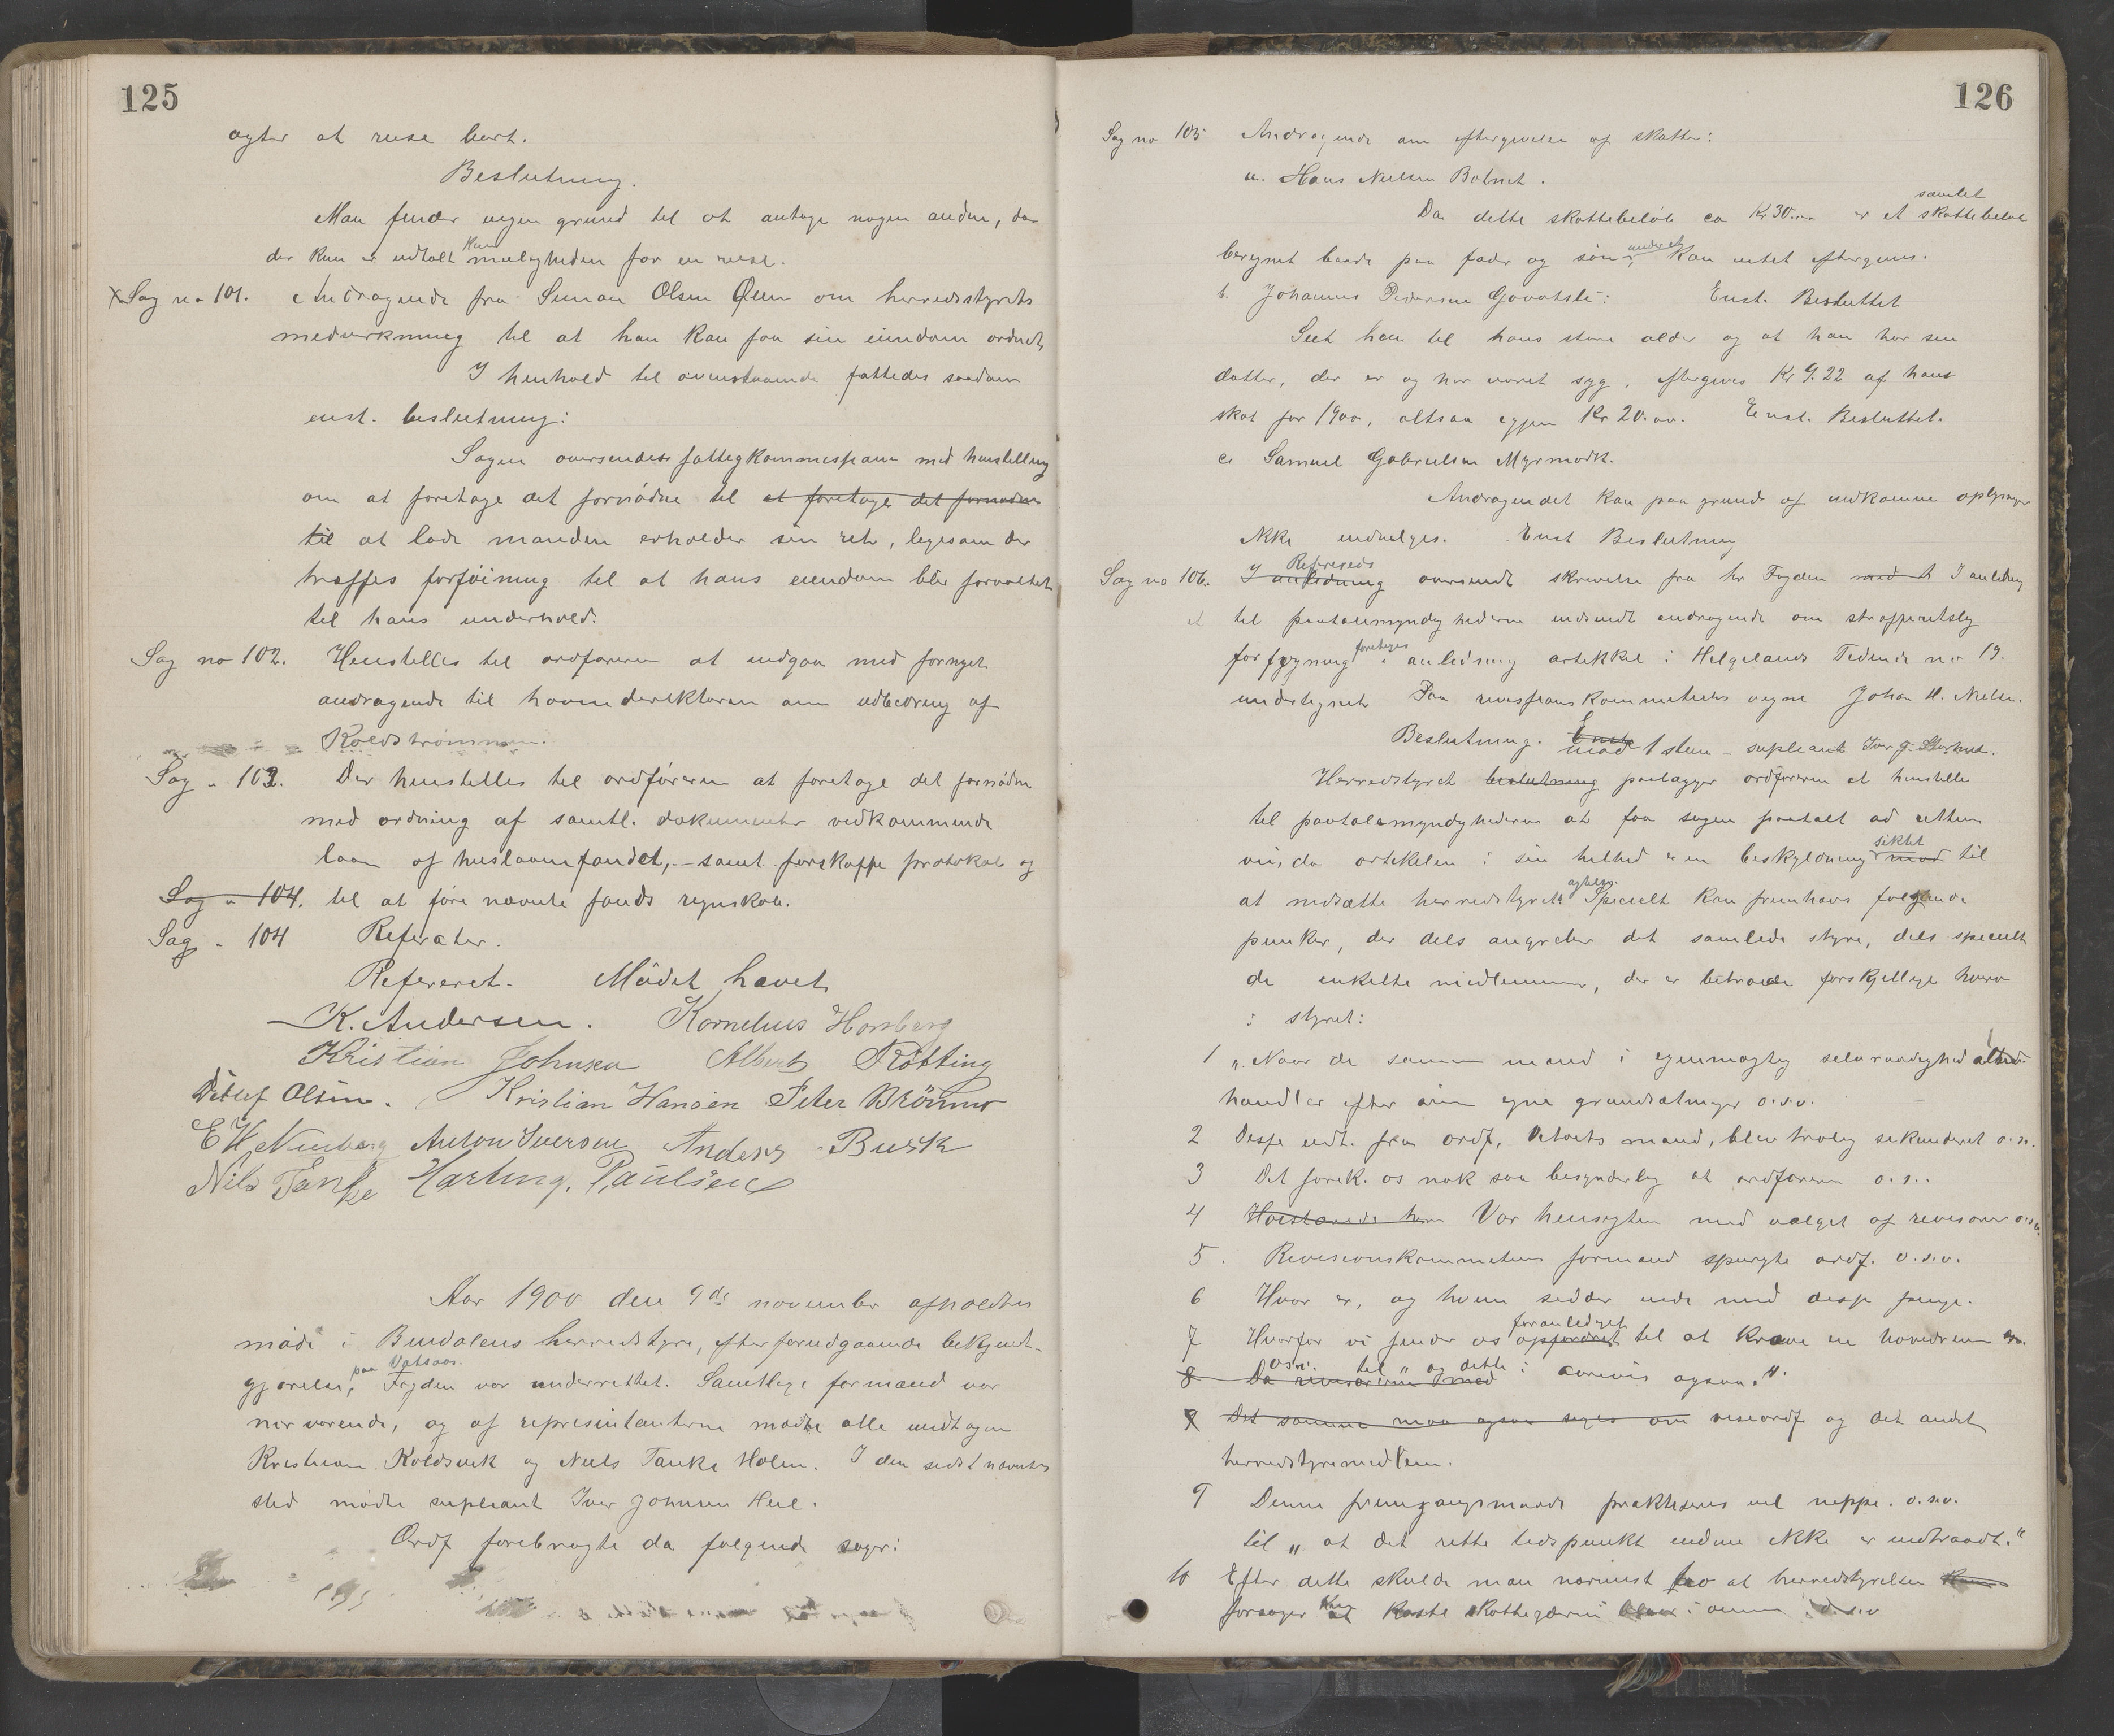 125
agter at reise bort.
Beslutning.
Man finder ingen grund til at antage nogen anden, da
der kun er udtalt muligheden for en reise.
Sag no 101. Andragende fra Simon Olsen Øien om herredsstyrets
medvirkning til at han kan faa sin eiendom ordnet,
I henhold til ovenstaaende fattedes saadan
enst. beslutning:
Sagen oversendes fattigkommissionen med henstilling
om at foretage det fornødne til at foretage det fornødne
til at lade manden erholder sin ret, ligesom der
træffes forføining til at hans eiendom blir forvaltet
til hans underhold.
Sag no 102. Henstilles til ordføreren at indgaa med fornyet
andragende til havnedirektøren om udbedring af
Koldstrømmen.
Sag " 103. Der henstilles til ordføreren at foretage det fornødne
med ordning af samtl. dokumenter vedkommende
laan af huslaanefondet, - samt forskaffe protokol og
Sag " 104. til at føre nævnte fonds regnskab.
Sag " 104 Referater.
Refereret. Mødet hævet
K. Andersen. Kornelius Horsberg
Kristian Johnsen Albert Røtting
Ditlef Olsen. Kristian Hansen Peter Brønmo
E H Anton Iversen Anders Busk
Nils Tanke Harting. Paulsen
Aar 1900 den 9de november afholdtes
møde i Bindalens herredstyre, efter forudgaaende bekjendt-
gjørelse, paa Vatsaas. Fogden var underrettet. Samtlige formænd var
nærværende, og af repræsentanterne mødte alle undtagen
Kristian Koldsvik og Niels Tanke Holm. I den sidst nævntes
sted mødte supleant Iver Johnsen Heil.
Ordf forebragte da følgende sager:
126
Sag no 105 Andragende om eftergivelse af skatter:
a. Hans Nielsen Bolnet.
Da dette skattebeløb ca Kr 30.00 er et samlet skattebeløb
beregnet baade paa fader og søn, kan intet eftergives.
b. Johannes Pedersen Gaaotsli: Enst. Besluttet
Seet hen til hans store alder og at han har sin
datter, der er og har været syg, eftergives Kr 9.22 af hans
skat for 1900, altsaa igjen Kr 20.00. Enst. Besluttet.
c. Samuel Gabrielsen Myrmark.
Andragendet kan paa grund af indkomne oplysninger
ikke indvilges. Enst Beslutning
Sag no 106. I anledning Refereredes oversendt skrivelse fra hr Fogden med et I anledning
et til paatalemyndighederne indsendt andragende om strafferetslig
forføyning foretages i anledning artikkel i Helgelands Tidende no 19.
undertegnet Paa revisionskommiteens vegne Johan H. Nielsen.
Beslutning. Enst. mod 1 stem - supleant Iver J.
Herredstyret beslutning paalægger ordføreren at henstille
til paatalemyndighederne at faa sagen paatalt ad rettens
vei, da artikelen i sin helhed er en beskyldning mod siktet til
at nedsætte herredstyrets agtelse. Specielt kan fremhæves følgende
punkter, der dels angriber det samlede styre, dels specielt
de enkelte medlemmer, der er betroede forskjellige hverv
i styret:
1 „Naar de samme mænd i egenmægtig selvraadighed altid
handler efter sine egne grundsætninger o.s.v.
2 Disse udt. fra ordf, Vetvets mand, blev trolig sekunderet o.s.v.
3 Det forek. os nok saa besynderlig at ordføreren o.s.v.
4 Var hensigten med valget af revisorer o.s.v.
5. Revisionskommiteens formand spurgte ordf. o.s.v.
6 Hvor er, og hvem sidder inde med disse penge.
7 Hvorfor vi finder os opfordret foranlediget til at kræve en
8 Da revisorerne med osv. til „ og dette i avisen ogsaa."
8 Det samme maa ogsaa siges om viseordf og det andet
herredstyremedlem.
9 Denne fremgangsmaade praktiseres vel neppe. o.s.v.
til „ at det rette tidspunkt endnu ikke er indtraadt."
10 Efter dette skulde man nærmest tro at herredstyrelsen kun
forsøger kun at kaste skatteyderne blaar i øinene o.s.v